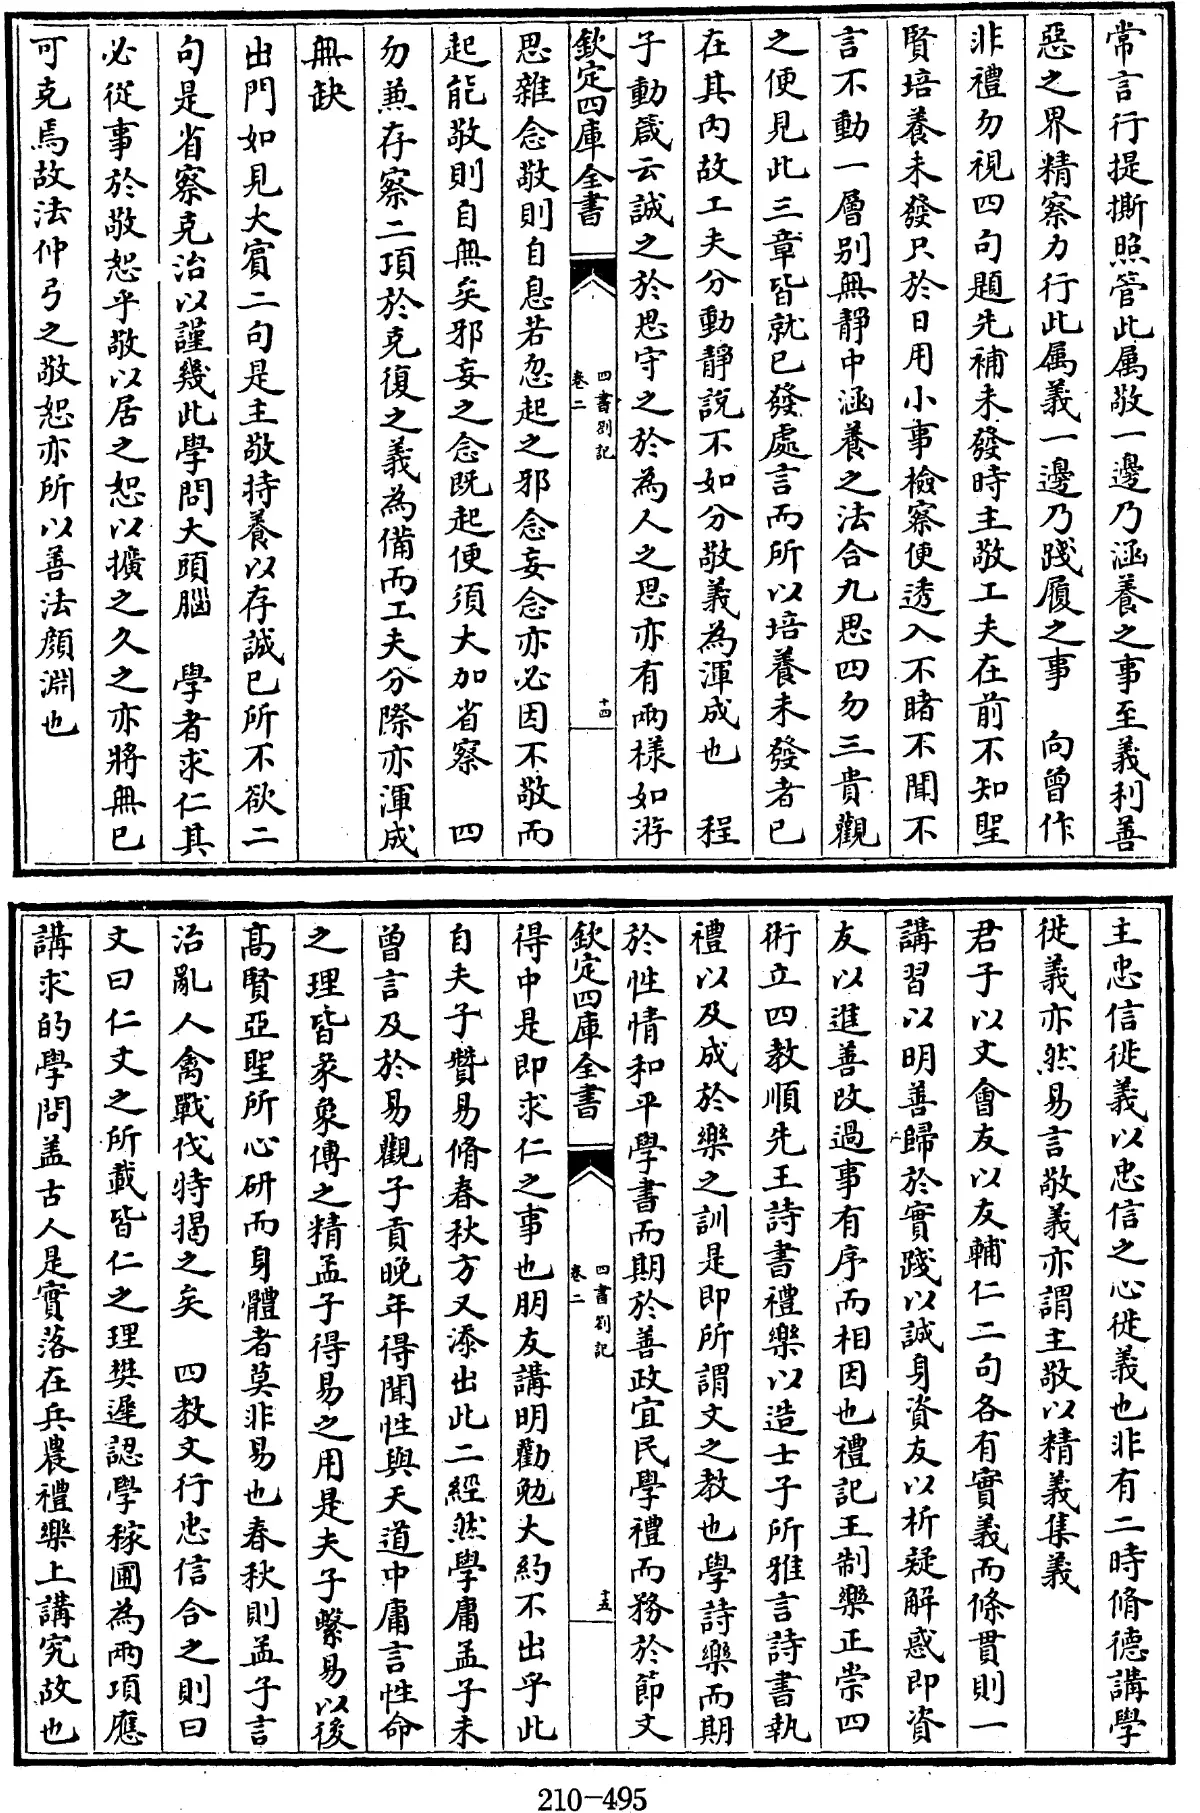 常言行提撕照管此属敬一邊乃涵養之事至義利善
惡之界精察力行此属義一邊乃踐履之事　向曾作
非禮勿視四句題先補未發時主敬工夫在前不知聖
賢培養未發只於日用小事檢察便透入不睹不聞不
言不動一層别無靜中涵養之法合九思四勿三貴觀
之便見此三章皆就已發處言而所以培養未發者已
在其内故工夫分動靜說不如分敬義為渾成也　程
子動箴云誠之於思守之於為人之思亦有兩様如游
欽定四庫全書
四書劄記
卷二
十四
思雜念敬則自息若忽起之邪念妄念亦必因不敬而
起能敬則自無矣邪妄之念既起便須大加省察　四
勿兼存察二項於克復之義為備而工夫分際亦渾成
無缺
出門如見大賓二句是主敬持養以存誠已所不欲二
句是省察克治以謹幾此學問大頭腦　學者求仁其
必從事於敬恕乎敬以居之恕以擴之久之亦將無已
可克焉故法仲弓之敬恕亦所以善法顔淵也
主忠信徙義以忠信之心徙義也非有二時脩德講學
徙義亦然易言敬義亦謂主敬以精義集義
君子以文會友以友輔仁二句各有實義而條貫則一
講習以明善歸於實踐以誠身資友以析疑解惑即資
友以進善改過事有序而相因也禮記王制樂正崇四
術立四教順先王詩書禮樂以造士子所雅言詩書執
禮以及成於樂之訓是即所謂文之教也學詩樂而期
於性情和平學書而期於善政宜民學禮而務於節文
欽定四庫全書
四書劄記
卷二
十五
得中是即求仁之事也朋友講明勸勉大約不出乎此
自夫子贊易脩春秋方又添出此二經然學庸孟子未
曾言及於易觀子貢晚年得聞性與天道中庸言性命
之理皆彖象傳之精孟子得易之用是夫子繫易以後
高賢亞聖所心研而身體者莫非易也春秋則孟子言
治亂人禽戰伐特揭之矣　四教文行忠信合之則曰
文曰仁文之所載皆仁之理樊遲認學稼圃為兩項應
講求的學問盖古人是實落在兵農禮樂上講究故也
210-495